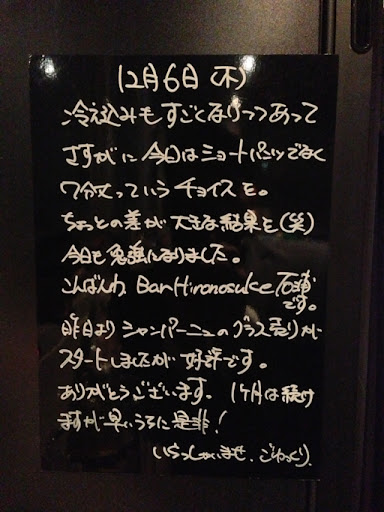 12月6日(木)
冷え込みもすごくなりつつあって
さすがに今日はショートパンツでなく
7分丈っていうチョイスを。
ちょっとの差が大きな結果を(笑)
今日も鬼義になりました。
こんばんわ BarHironosuke 石浦
です。
昨日よりシャンパーニュのグラス売りが
スタートしましたが好評です。
ありがとうございます。1ヶ月は続け
ますが早いうちに是非!
いらっしゃいませ、ごゆっくり。